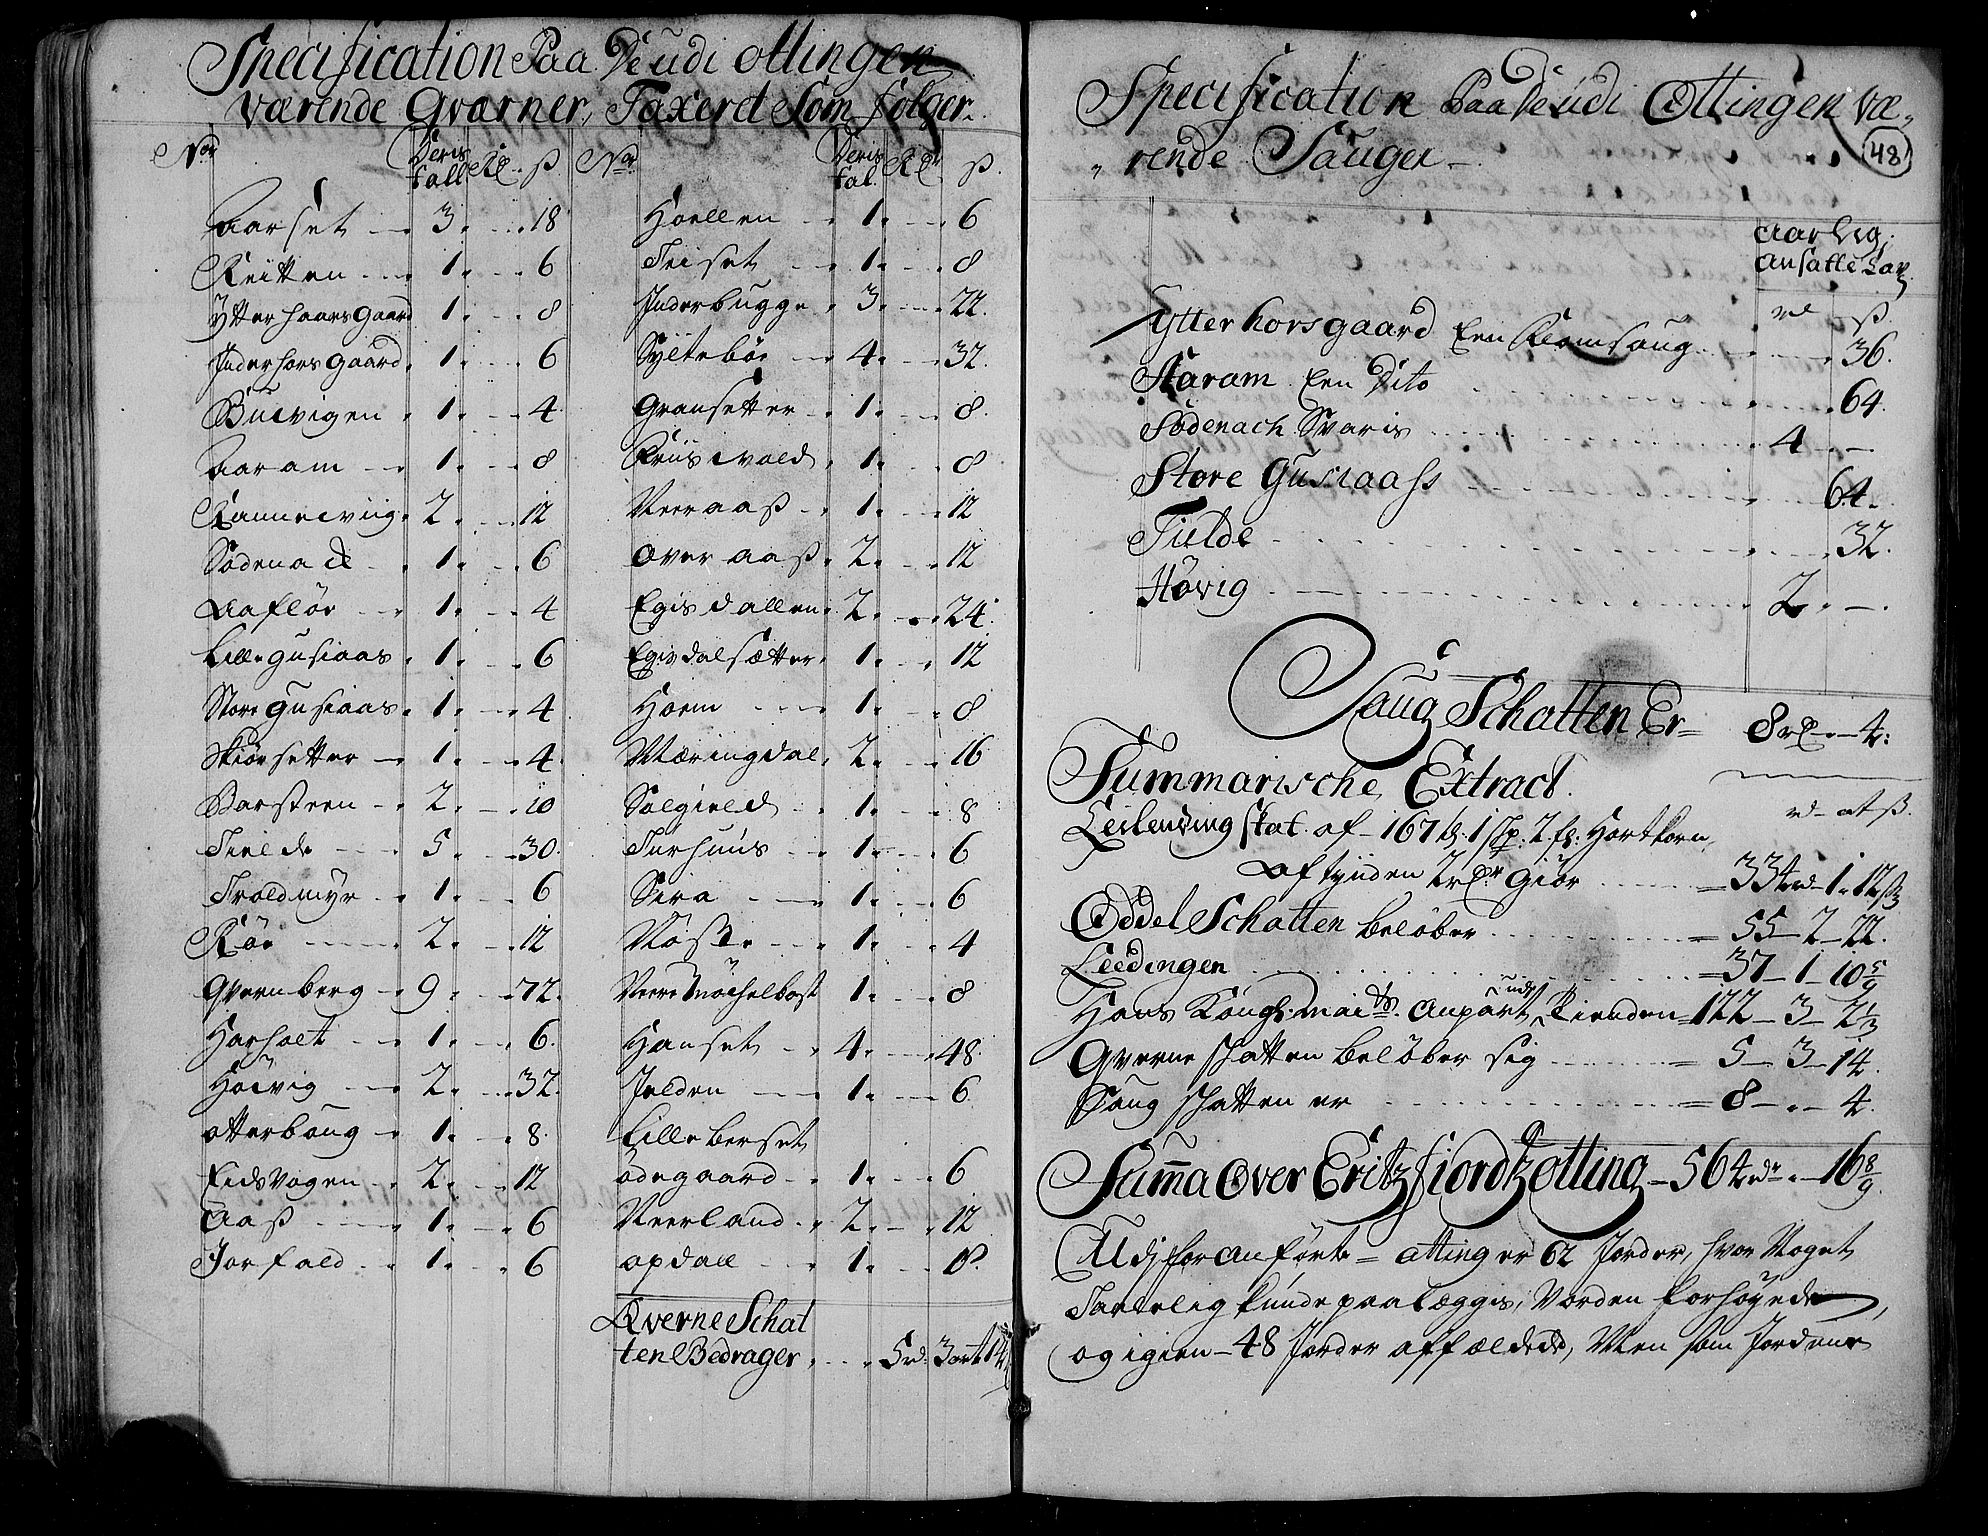 Specification Paa De udi Ottingen
værende Qværner, Taxeret Som følger.
Nor Deris tall Rd ß
Aarset 3. 18
Reitten 1. 6
Ytterhaarsgaard 1. 8
Inderhorsgaard 1. 6
Buevigen 1. 4
Aaram 1. 8
Ranneviig 2. 12
Södenack 1. 6
Aaflör 1. 4
Lille Gusiaas 1. 6
Store Gusiaas 1. 4
Skiörsetter 1. 4
Barsteen 2. 10
Tielde 5. 30.
Troldmyr 1. 6
Röe 2. 12
Qvernberg 9. 72.
Harholt 1. 6.
Höevig 2. 32.
Otterboug 1. 8.
Eidsvogen 2. 12
Aaß 1. 6
Jorfald 1. 6
Nor Deris tal. Rd ß
Hoellen 1. 6
Teiset 1. 8
Inderbugge 3. 22.
Sylteböe 4. 32.
Gransetter 1. 8.
Kruisvold 1. 8
Veeraaß 1. 12
Overaaß 2. 12
Egisdallen 2. 24.
Egisdalsætter 1. 12
Hoem 1. 8
Mæringdal 2. 16
Solgield 1. 8
Turhuus 1. 6
Sira 1. 6
Nöste 1. 4
Veere Möckelbost 1. 8
Hanset 4. 48.
Jelden 1. 6
Lilleberset
ödegaard 1. 6
Neerland 2. 12
Opdall 1. 8.
Kverne Schat
ten Bedrager, 5 rd. 3 ort 14
Specification Paa De udi Ottingen væ-
48
rende Sauger
Aarlig
ansatte
rd ß
Ytterhorsgaard Een Flomsaug 36.
Staram Een Dito 64.
Södenach Svaris 4 -
Store Gusiaass 64.
Tielde 32.
Hövig 2. -.
Saug Schatten Er 8 rd. - 4:
Summarische Extract.
rd ort ß.
Leilending skat af 167 1 2 Hartkorn,
af tynden 2 rdr giör = 334 rd 1. 12 ß
Oddel Schatten belöber = 55 - 2 - 22.
Leedingen = 37 - 1 - 10 5/9
Hans Kongl: Maits. Anpart udj Tienden = 122 - 3 - 2 1/3
Qverne skatten belöber sig = 5 - 3 - 14.
Saug skatten er = 8 - . - 4.
Summa Over Eritzfiordtz otting - 564 rdr. - 16 8/9
Udj for anförte otting er 62 Jorder, hvor Noget
Taalelig kunde paa læggis, Vorden forhöyede,
og igien - 48 Jorder affældede, Men som Jordene